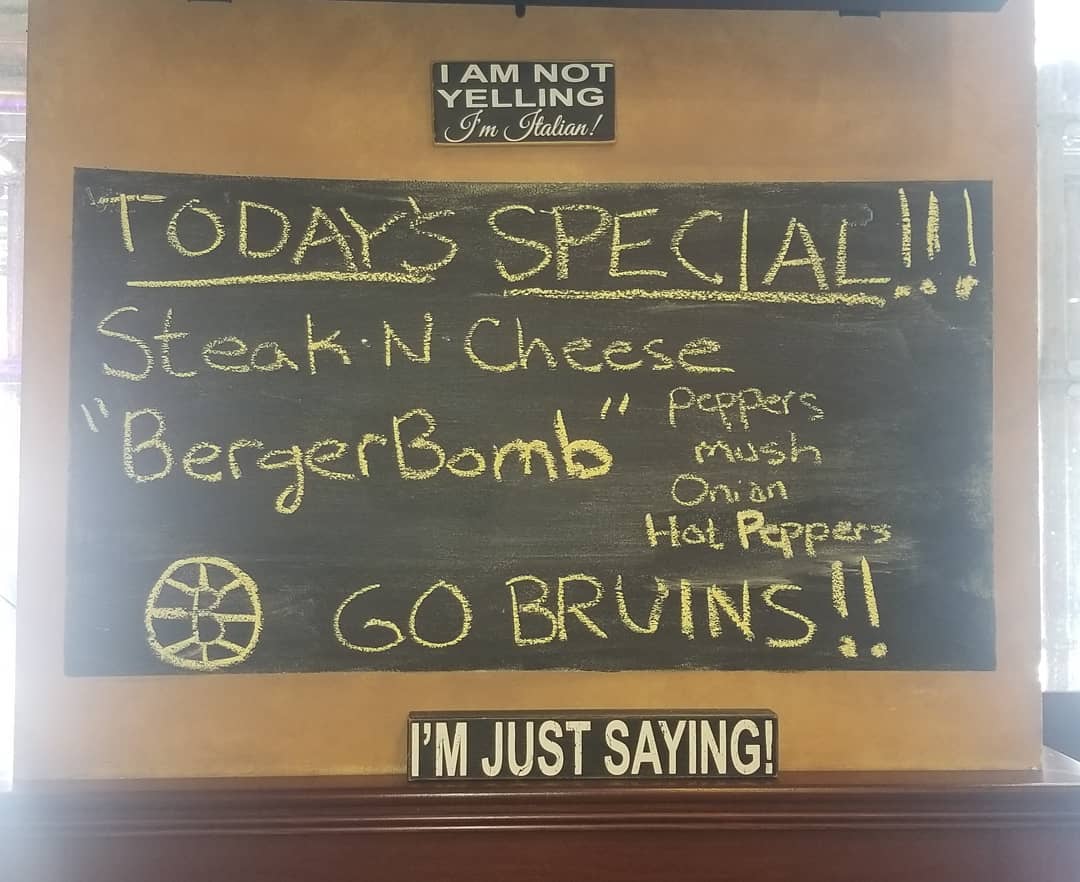 I AM NOT
YELLING
I'm Italian!
TODAY'S SPECIAL!!!
Steak·N Cheese
"BergerBomb"
Peppers
mush
Onion
Hot Peppers
B
GO BRUINS!!
I'M JUST SAYING!